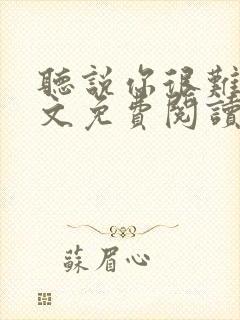 聽說你很難
文免費閱讀
蘇眉心